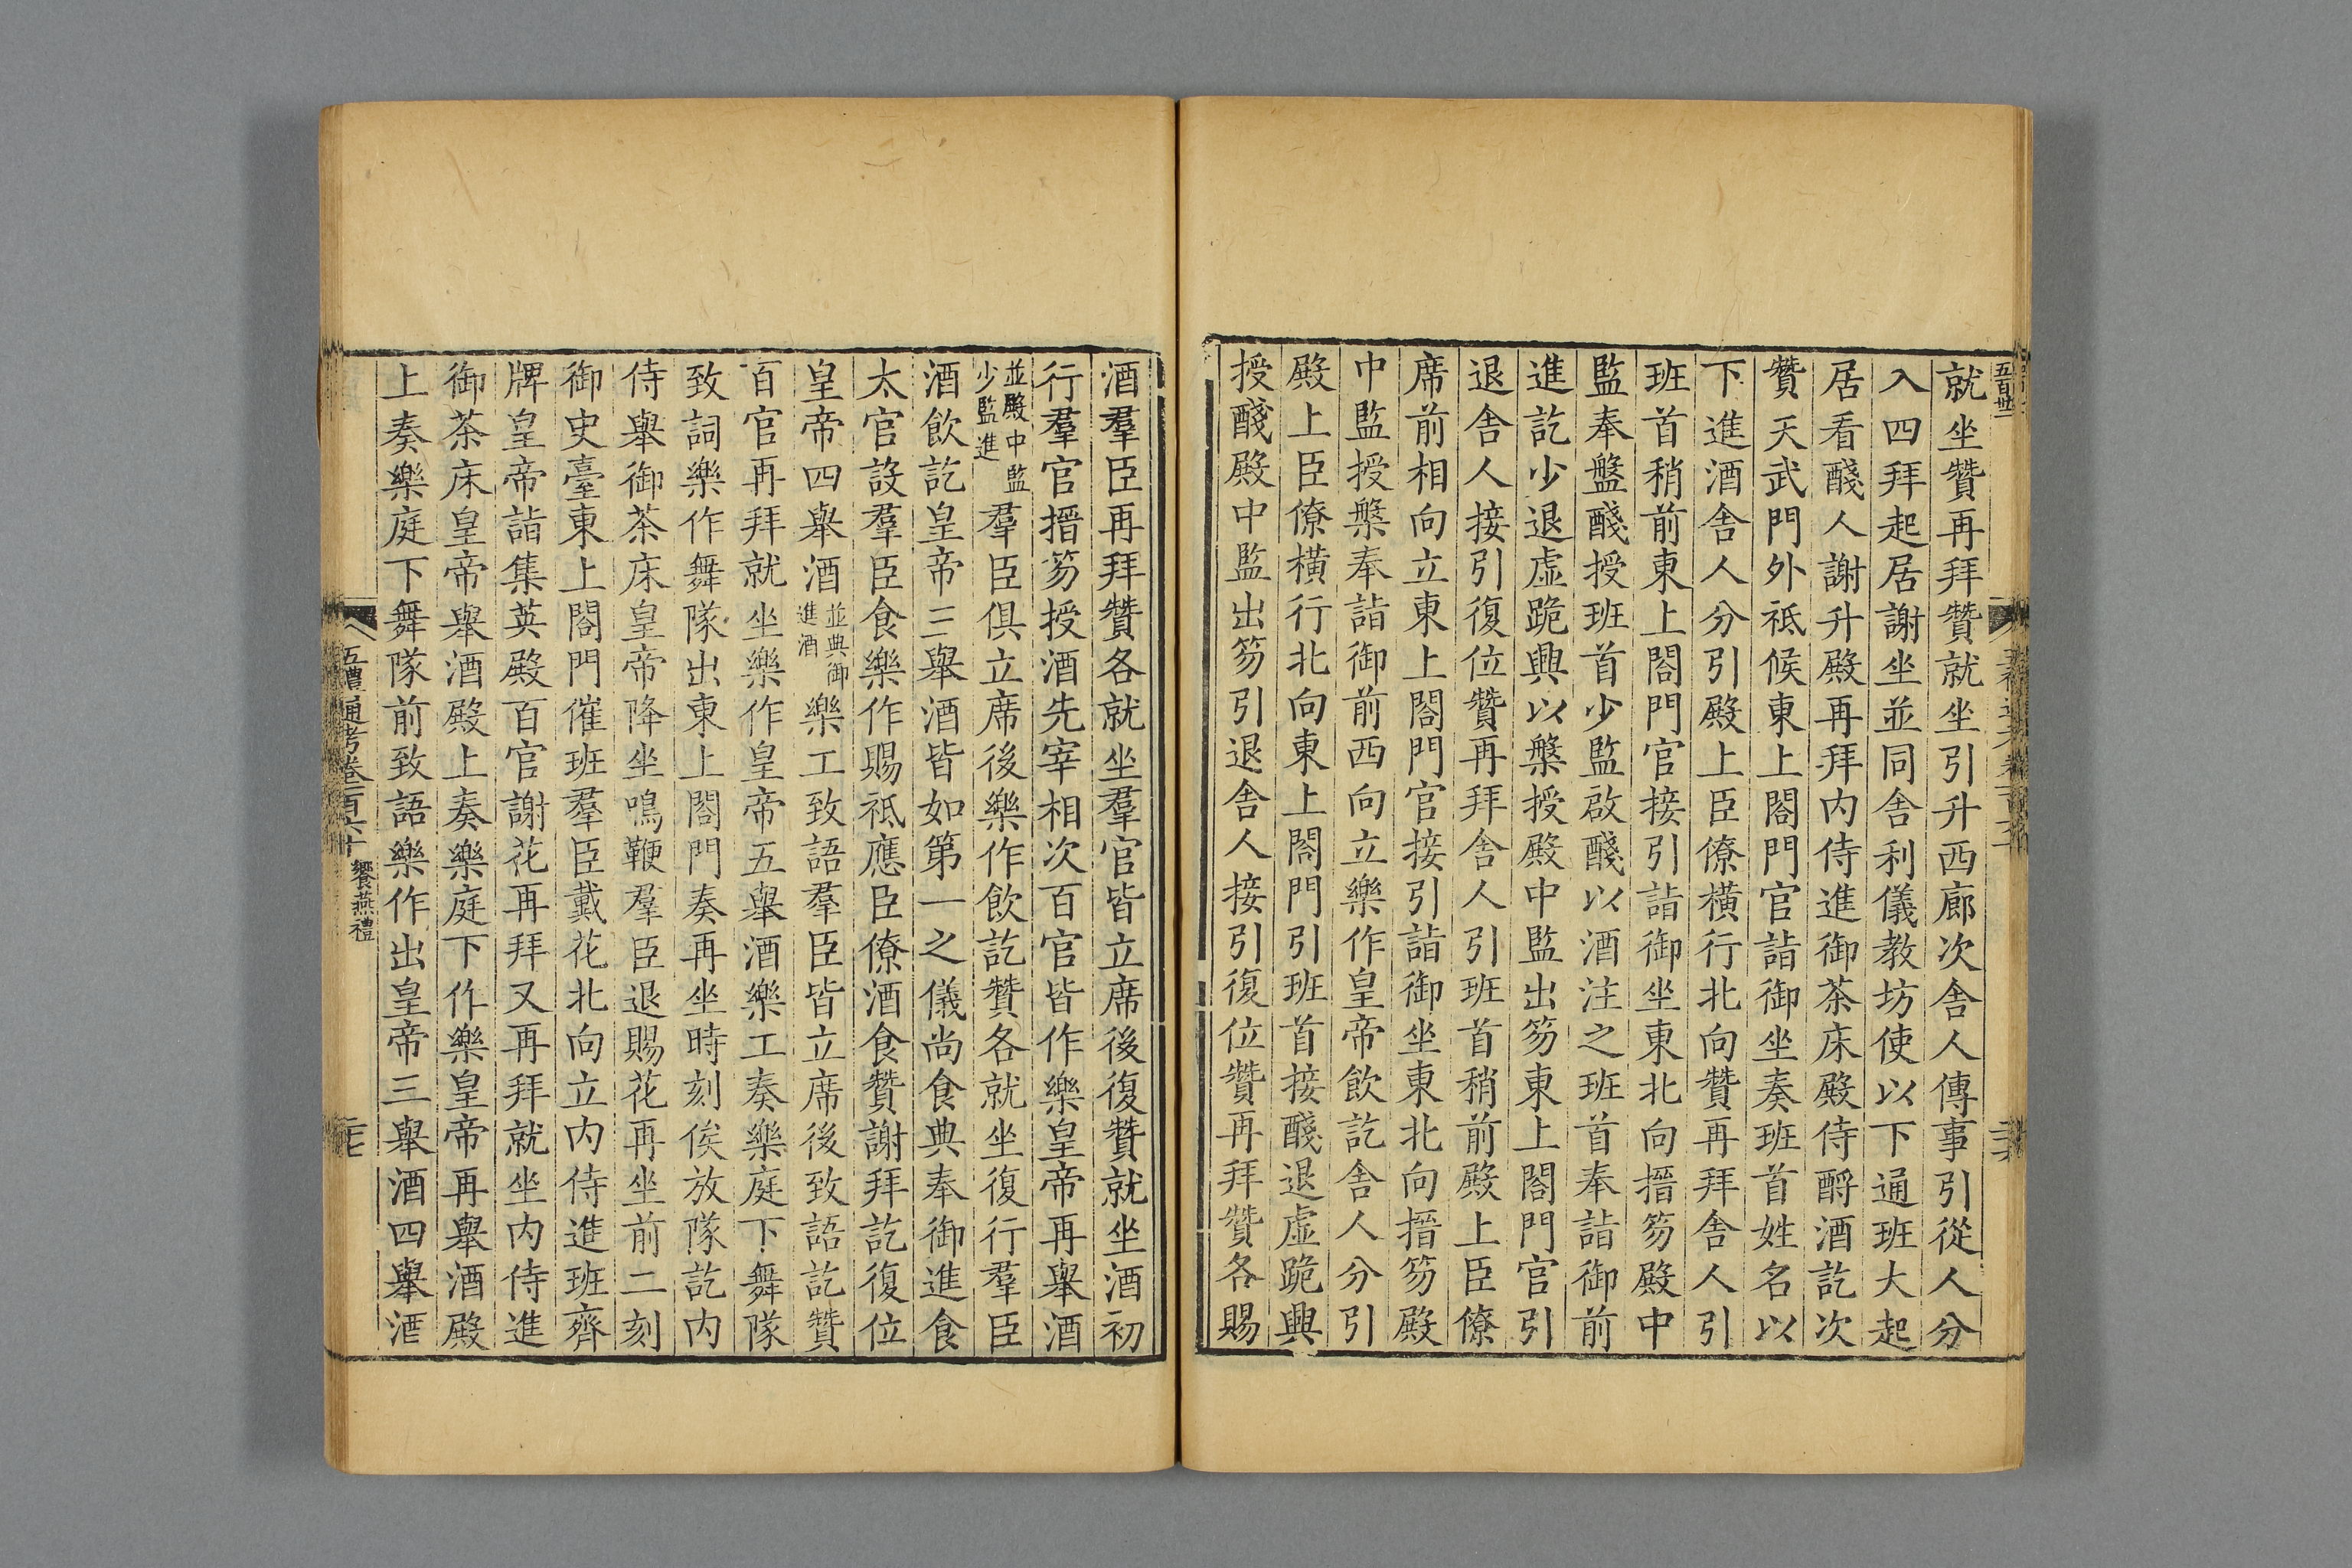 就坐贊再拜贊就坐引升西廊次舎人傳事引從人分
入四拜起居謝坐並同舎利儀教坊使以下通班大起
居看醆人謝升殿再拜内侍進御茶床殿侍酹酒訖次
贊天武門外祗候東上閤門官詣御坐奏班首姓名以
下進酒舎人分引殿上臣僚横行北向贊再拜舎人引
班首稍前東上閤門官接引詣御坐東北向搢笏殿中
監奉盤醆授班首少監啟醆以酒注之班首奉詣御前
進訖少退虛跪興以槃授殿中監出笏東上閤門官引
退舎人接引復位贊再拜舎人引班首稍前殿上臣僚
席前相向立東上閤門官接引詣御坐東北向搢笏殿
中監授槃奉詣御前西向立樂作皇帝飲訖舎人分引
殿上臣僚横行北向東上閤門引班首接醆退虛跪興
授醆殿中監出笏引退舎人接引復位贊再拜贊各賜
酒羣臣再拜贊各就坐羣官皆立席後復贊就坐酒初
行羣官搢笏授酒先宰相次百官皆作樂皇帝再舉酒
並殿中監
少監進
羣臣俱立席後樂作飲訖贊各就坐復行羣臣
酒飲訖皇帝三舉酒皆如第一之儀尚食典奉御進食
太官設羣臣食樂作賜祗應臣僚酒食贊謝拜訖復位
皇帝四舉酒
並典御
進酒
樂工致語羣臣皆立席後致語訖贊
百官再拜就坐樂作皇帝五舉酒樂工奏樂庭下舞隊
致詞樂作舞隊出東上閤門奏再坐時刻俟放隊訖内
侍舉御茶床皇帝降坐鳴鞭羣臣退賜花再坐前二刻
御史臺東上閤門催班羣臣戴花北向立内侍進班齊
牌皇帝詣集英殿百官謝花再拜又再拜就坐内侍進
御茶床皇帝舉酒殿上奏樂庭下作樂皇帝再舉酒殿
上奏樂庭下舞隊前致語樂作出皇帝三舉酒四舉酒
五禮通考卷一百六十 饗燕禮